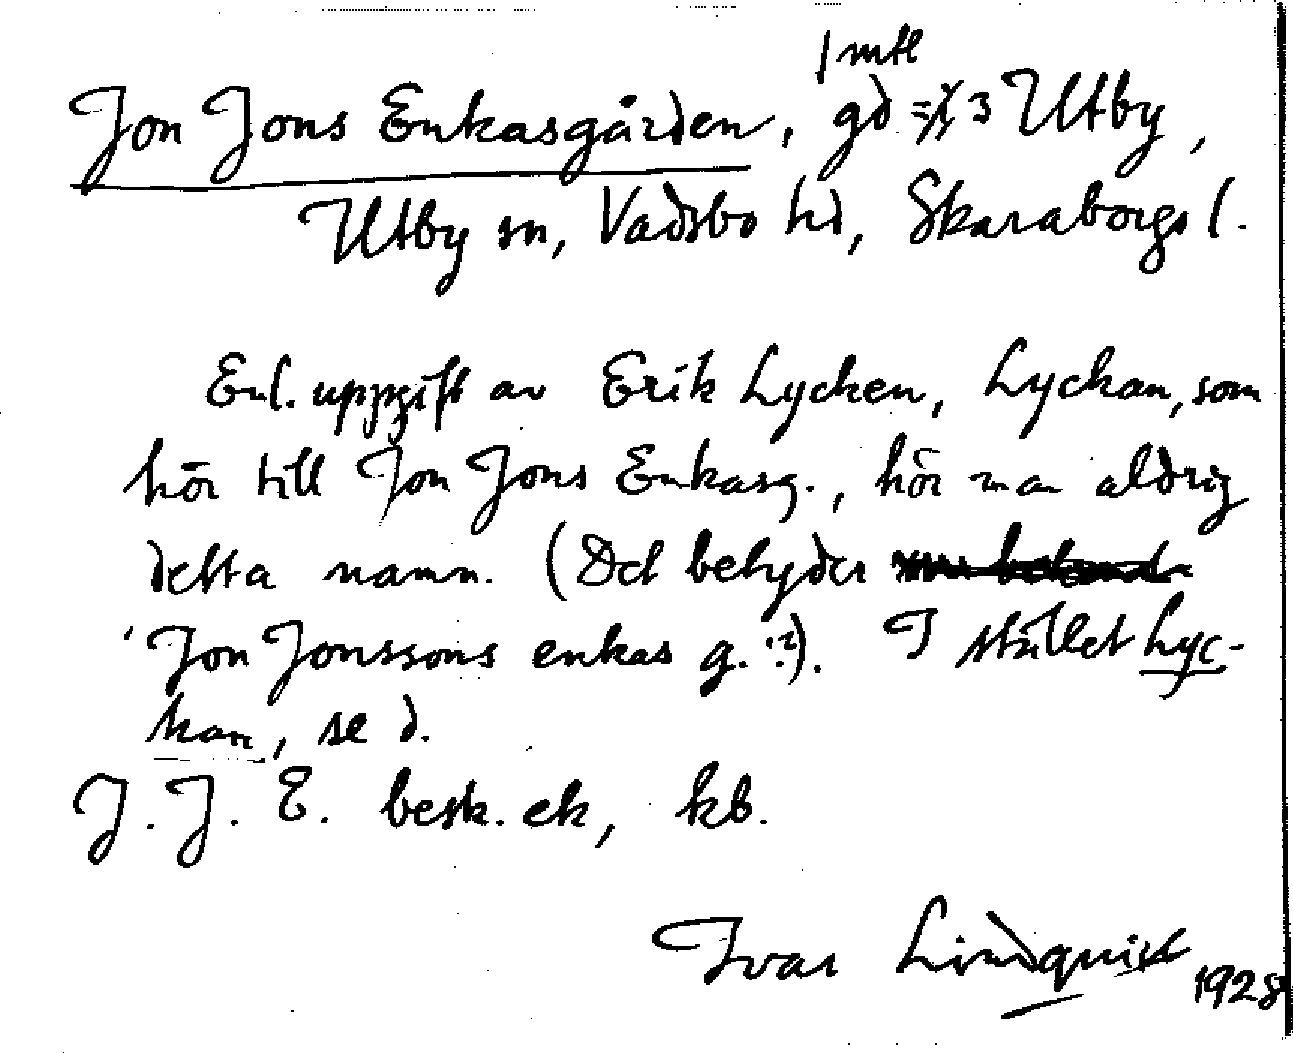 1 mtl
Jon Jons Enkasgården, gd = 3 Utby,
Utby sn, Vadsbo hd, Skaraborgs l.
Enl. uppgift av Erik Lycken, Lyckan, som
hör till Jon Jons Enkasg., hör man aldrig
detta namn. (Det betyder
'Jon Jonssons enkas g.'?). I stället Lyc-
kan, se d.
J. J. E. besk. ek, kb.
Ivar Lindquist
1928